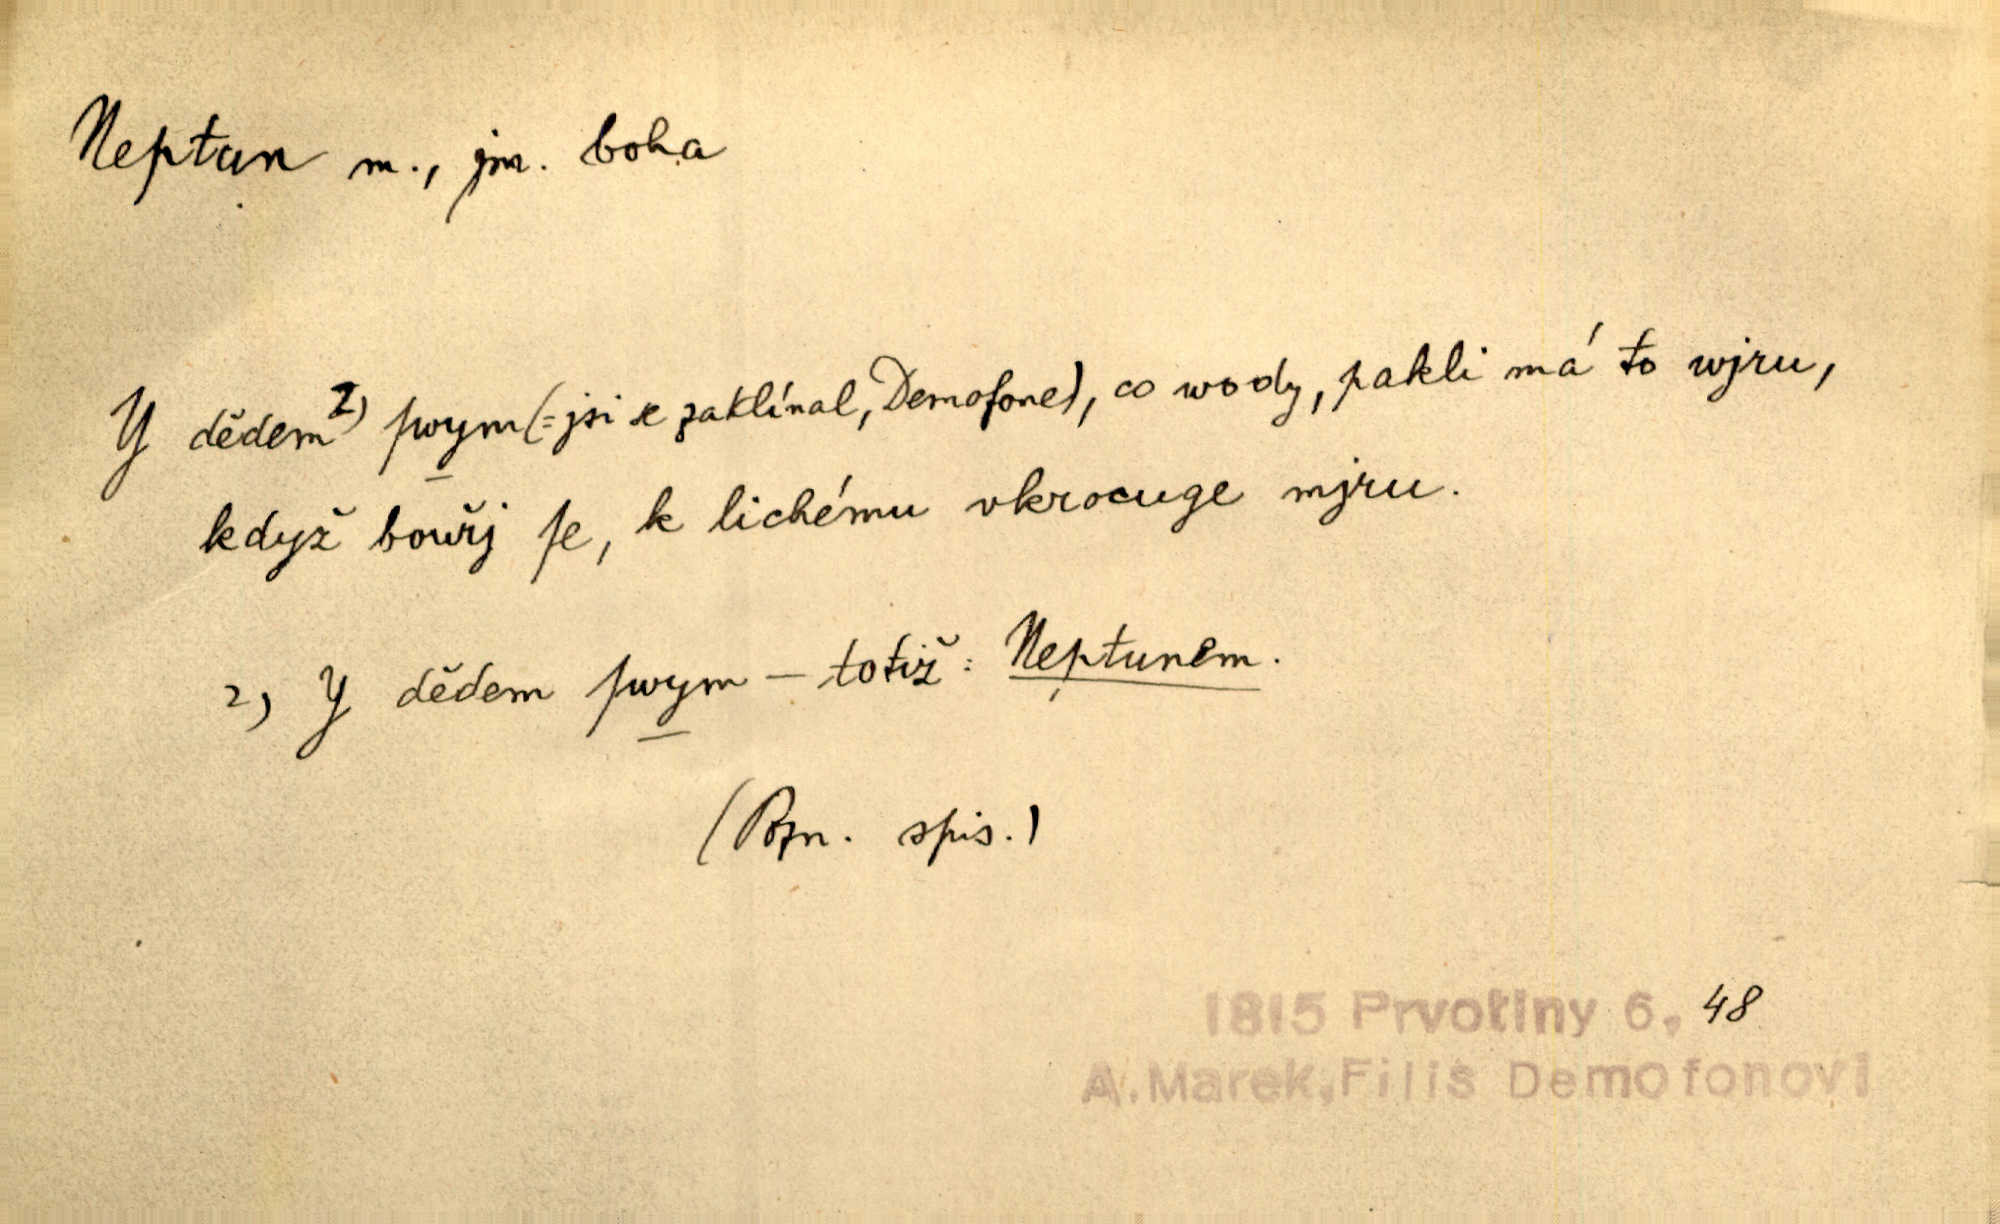 Neptun m., jm. boha
Y dědem²⁾ ſwym (= jsi se zaklínal, Demofone), co wody, pakli má to wjru,
když bouřj ſe, k lichému vkrocuge mjru.
2) Y dědem ſwym – totiž: Neptunem.
(Pozn. spis.)
1815 Prvotiny 6, 48
A. Marek, Filis Demofonovi